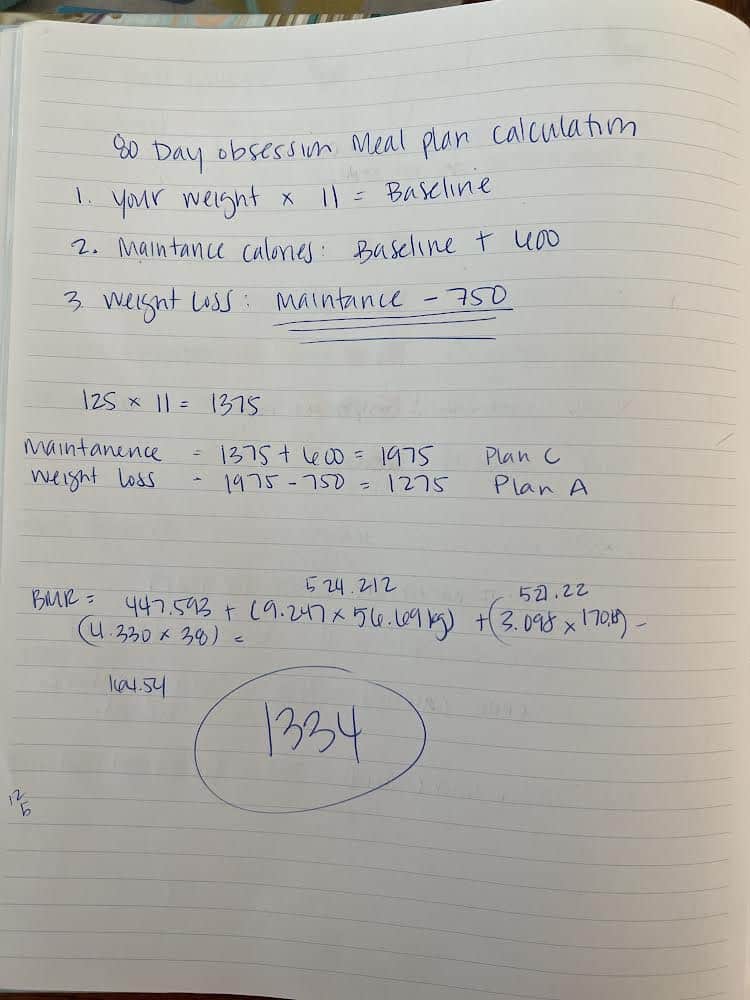 80 Day obsession Meal plan calculation
1. Your weight x 11 = Baseline
2. Maintance calories: Baseline + 600
3. Weight Loss: Maintance - 750
125 x 11 = 1375
Maintanence = 1375 + 600 = 1975 Plan C
Weight Loss = 1975 - 750 = 1275 Plan A
524.212 527.22
BMR = 447.593 + (9.247 x 56.69 kg) + (3.098 x 170.18) -
(4.330 x 38) =
164.54
1334
12
5